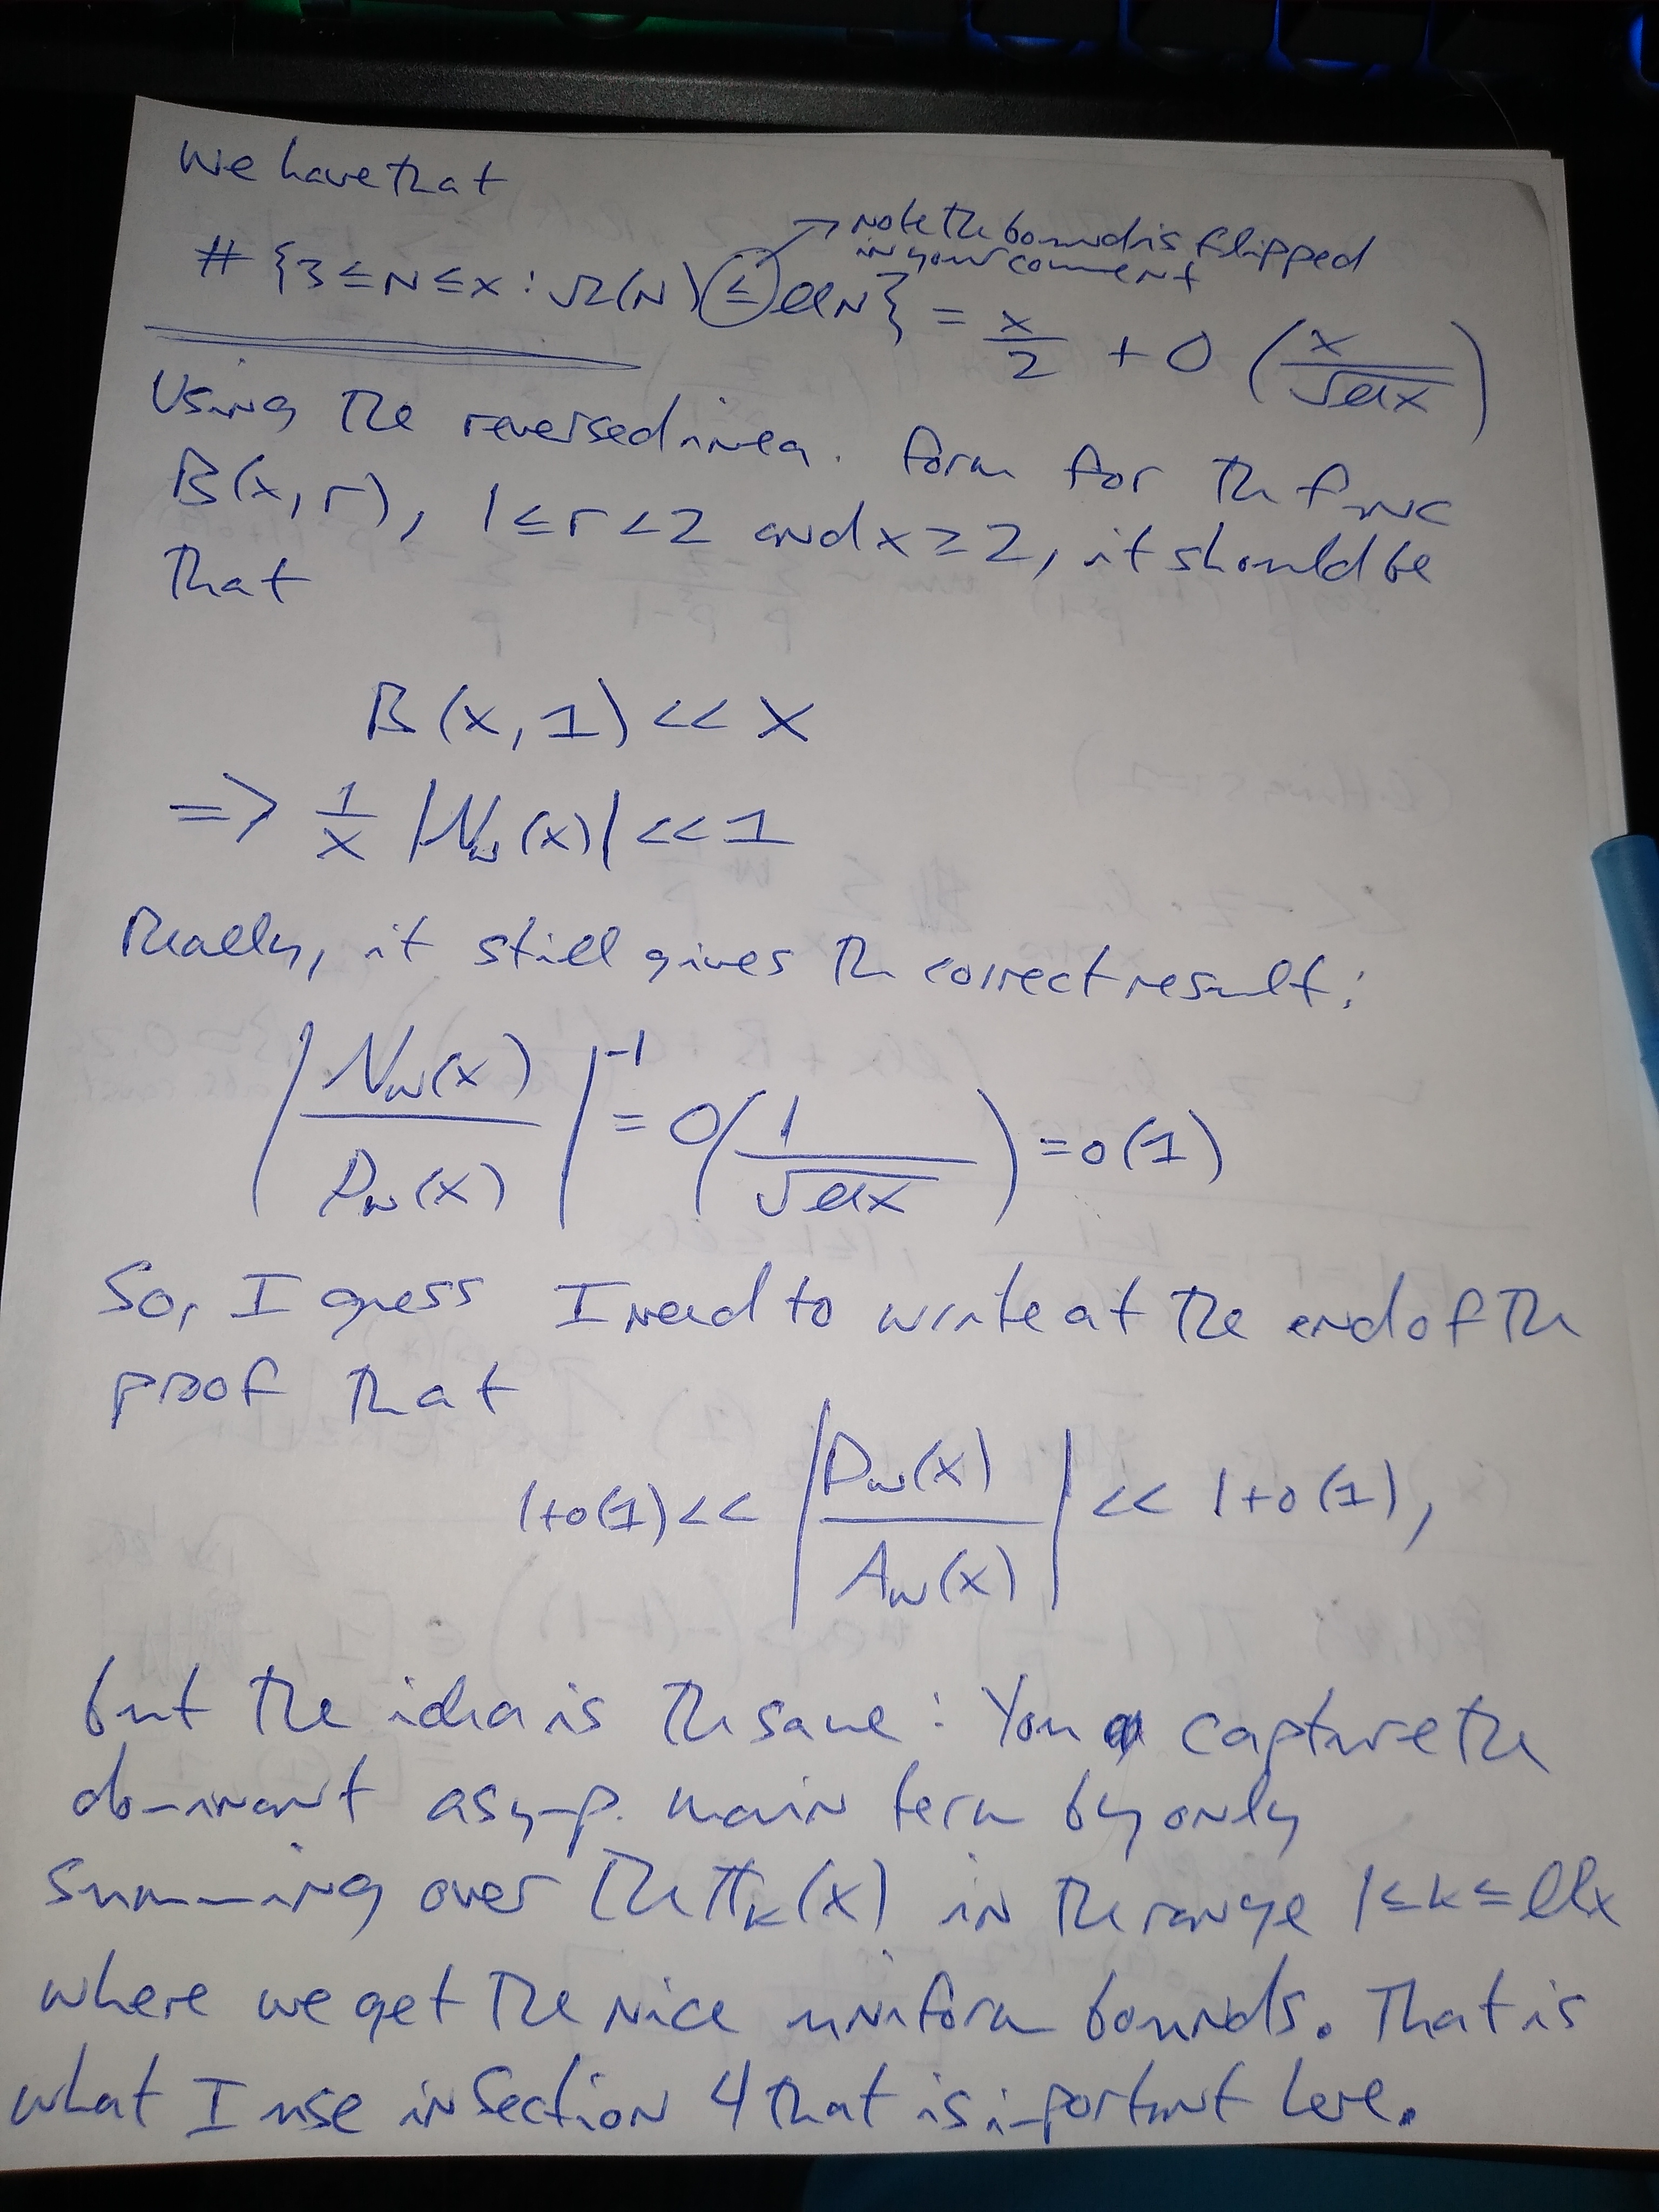 We have that
# {3 ≤ N ≤ x : Ω(N) ≤ llN} = x/2 + O(x/√llx)
→ note the bound is flipped
in your comment
Using the reversed ineq. form for the func
B(x, r), 1 ≤ r < 2 and x ≥ 2, it should be
that
B(x, 1) << x
=> 1/x |Nω(x)| << 1
Really, it still gives the correct result:
|Nω(x)/Dω(x)|^-1 = O(1/√llx) = o(1)
So, I guess I need to write at the end of the
proof that
1+o(1) << |Dω(x)/Aω(x)| << 1+o(1),
but the idea is the same : You capture the
dominant asymp. main term by only
summing over the πk(x) in the range 1 ≤ k ≤ llx
where we get the nice uniform bounds. That is
what I use in Section 4 that is important here.